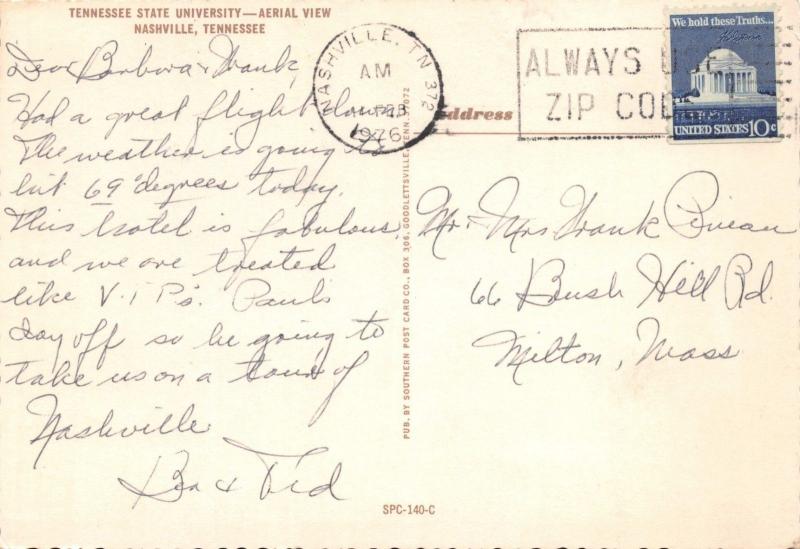 TENNESSEE STATE UNIVERSITY—AERIAL VIEW
NASHVILLE, TENNESSEE
Dear Barbara & Frank,
Had a great flight down.
The weather is going to
hit 69 degrees today.
This hotel is fabulous
and we are treated
like V.I.P's. Paul's
day off so he going to
take us on a tour of
Nashville
Bea & Ted
NASHVILLE, TN 372
AM
FEB
1976
ALWAYS USE
ZIP CODE
We hold these Truths...
UNITED STATES 10c
Address
Mr. Mrs Frank
66 Bush Hill Rd.
Milton, Mass
PUB. BY SOUTHERN POST CARD CO., BOX 306, GOODLETTSVILLE, TENN. 37072
SPC-140-C